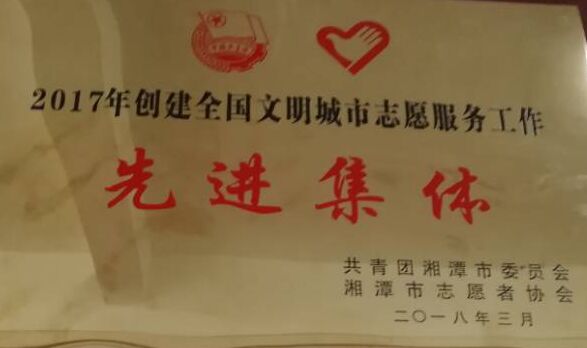 2017年创建全国文明城市志愿服务工作
先进集体
共青团湘潭市委员会
湘潭市志愿者协会
二〇一八年三月